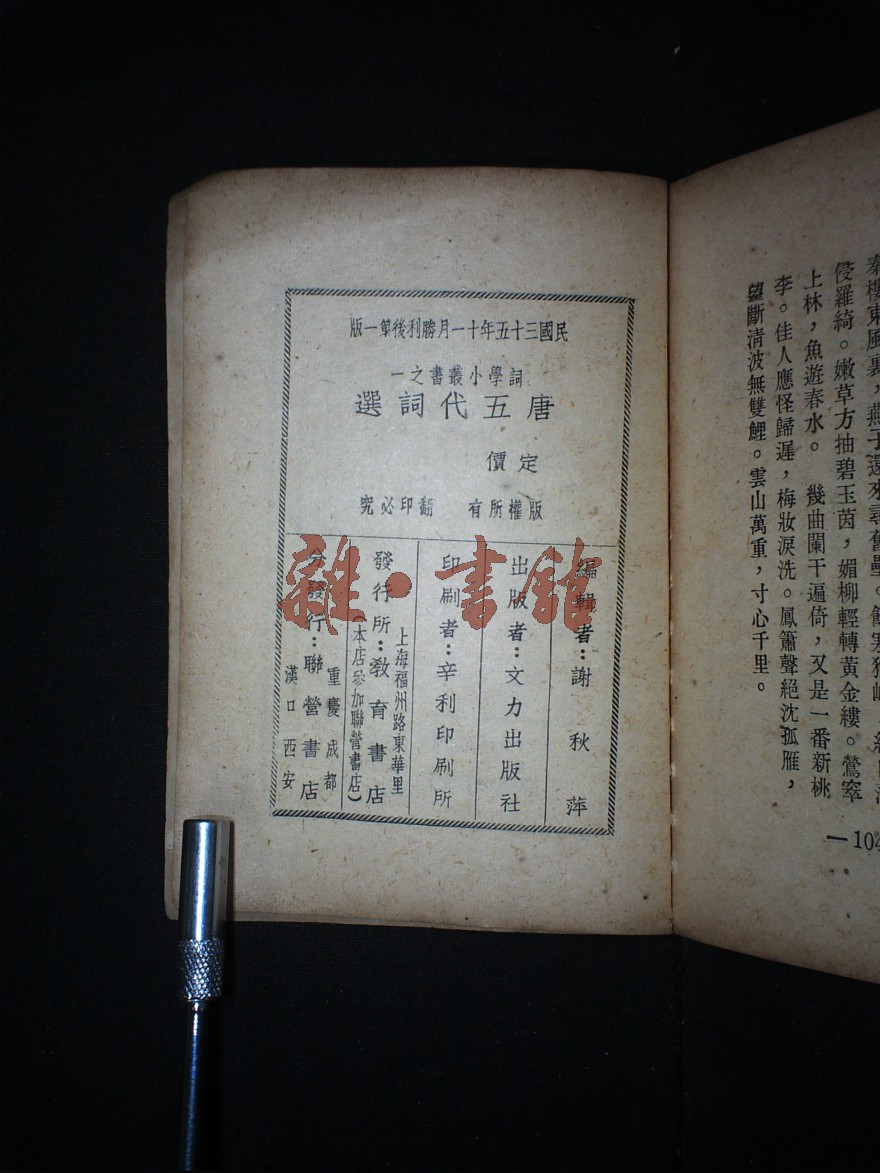 民國三十五年十一月勝利後第一版
詞學小叢書之一
唐五代詞選
定價
版權所有 翻印必究
編輯者：謝秋萍
出版者：文力出版社
印刷者：辛利印刷所
上海福州路東華里
發行所：教育書店
（本店參加聯營書店）
重慶成都
分發行：聯營書店
漢口西安
雜·書館
秦樓東風裏，燕子還來尋舊壘。
侵羅綺。嫩草方抽碧玉茵，媚柳輕轉黃金縷。鶯窣
上林，魚遊春水。 幾曲闌干遍倚，又是一番新桃
李。佳人應怪歸遲，梅妝淚洗。鳳簫聲絕沈孤雁，
望斷清波無雙鯉。雲山萬重，寸心千里。
—104